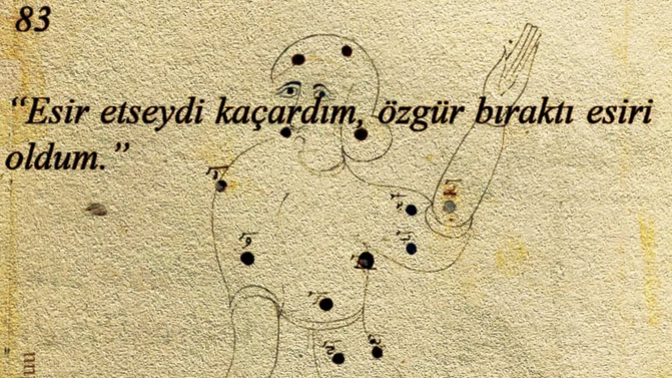 83
“Esir etseydi kaçardım, özgür bıraktı esiri
oldum.”